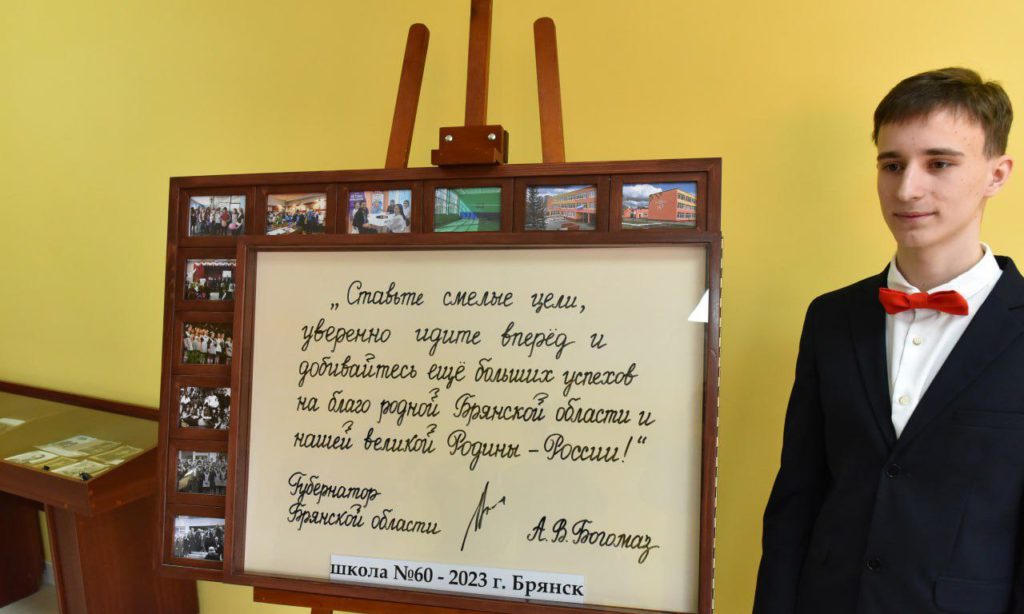 „Ставьте смелые цели,
уверенно идите вперёд и
добивайтесь ещё больших успехов
на благо родной Брянской области и
нашей великой Родины – России!“
Губернатор
Брянской области
А.В.Богомаз
школа №60 - 2023 г. Брянск